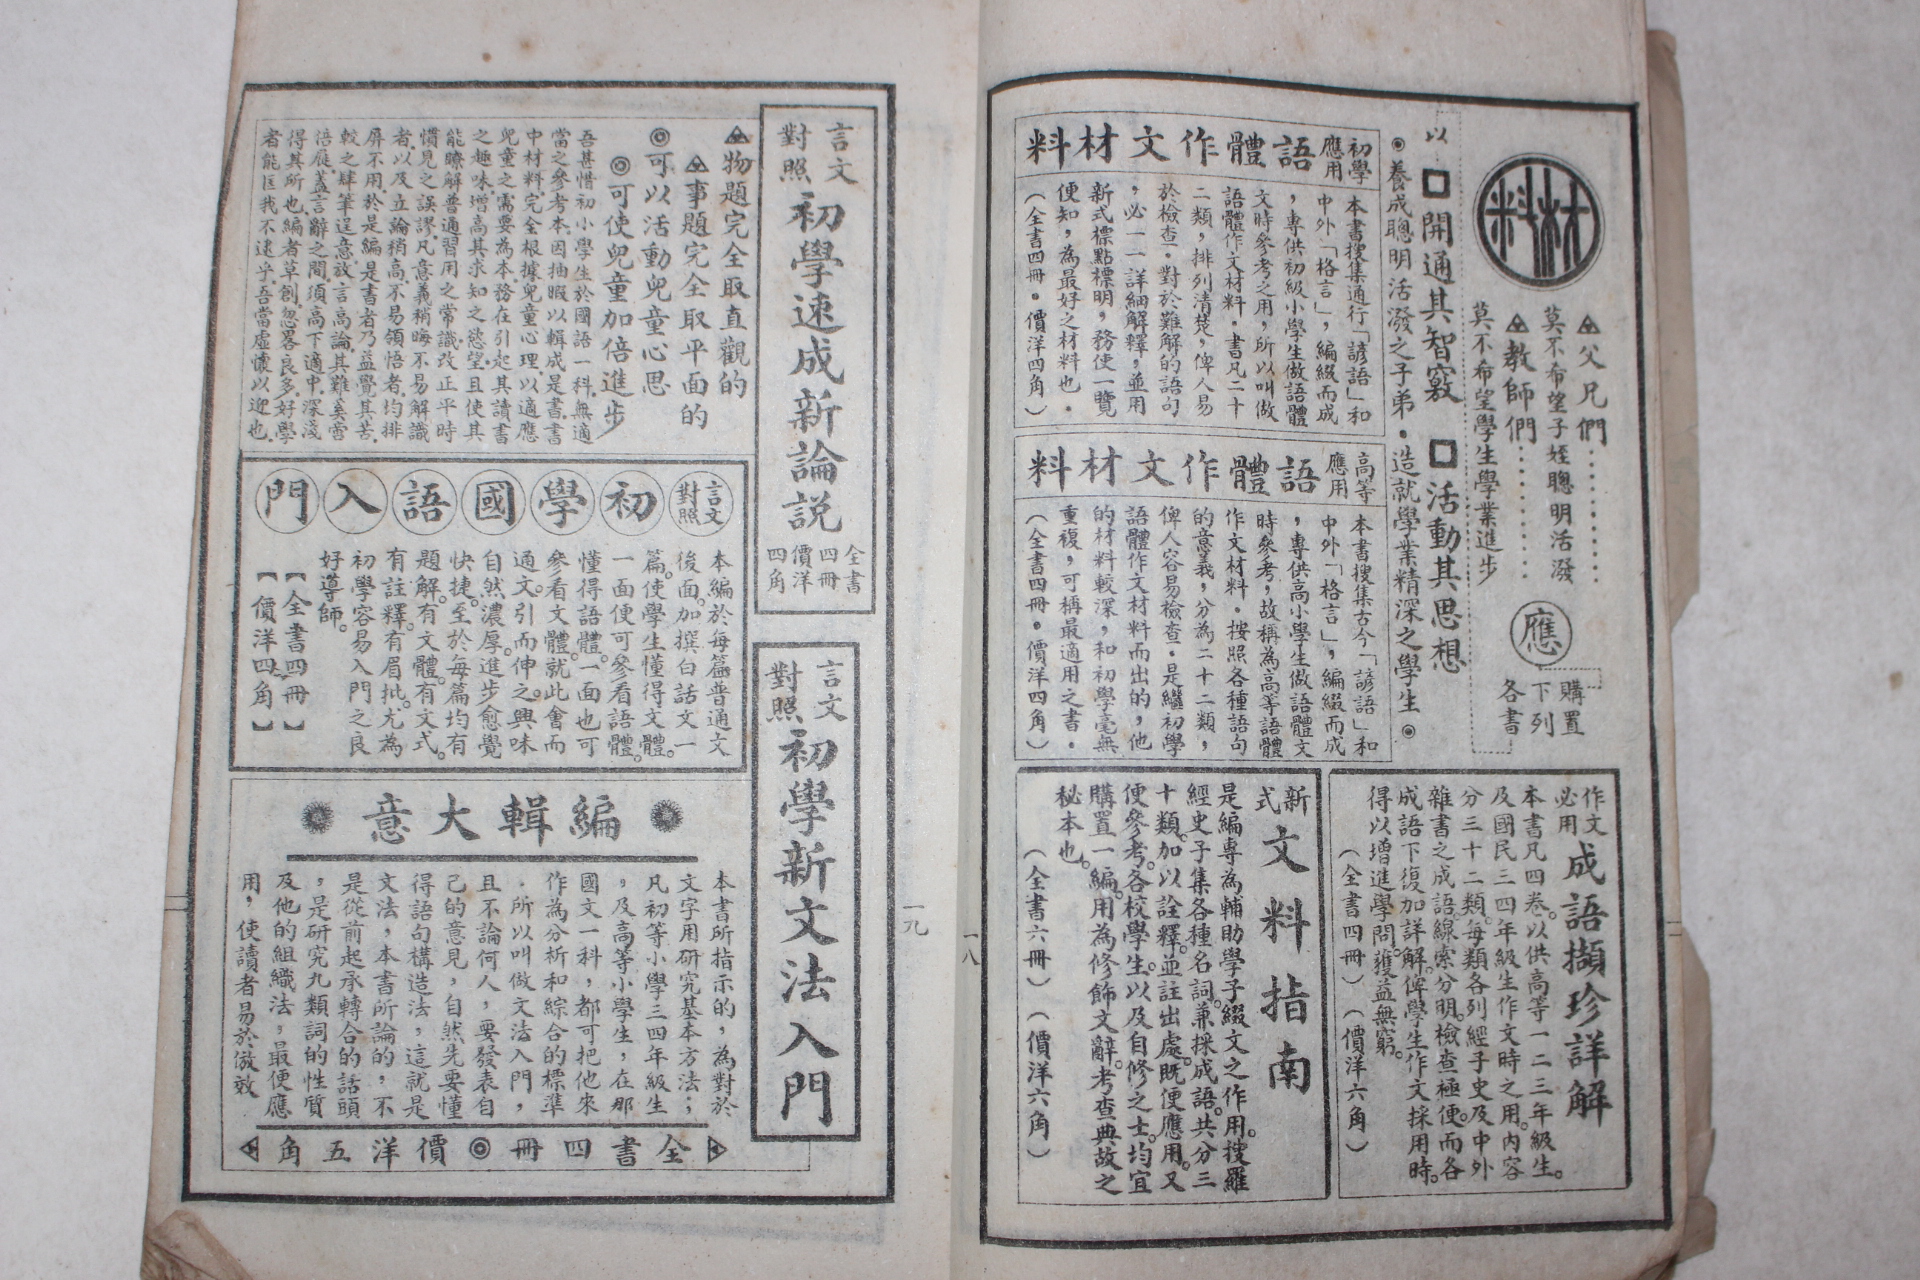 材料
父兄們
莫不希望子姪聰明活潑
教師們
莫不希望學生學業進步
應
購置
下列
各書
以
開通其智竅
活動其思想
養成聰明活潑之子弟・造就學業精深之學生
初學
應用
語體作文材料
本書搜集通行「諺語」和
中外「格言」,編綴而成
,專供初級小學生做語體
文時參考之用,所以叫做
語體作文材料・書凡二十
二類,排列清楚,俾人易
於檢查・對於難解的語句
,必一一詳細解釋,並用
新式標點標明,務使一覽
便知,為最好之材料也・
(全書四冊・價洋四角)
高等
應用
語體作文材料
本書搜集古今「諺語」和
中外「格言」,編綴而成
,專供高小學生做語體文
時參考,故稱為高等語體
作文材料・按照各種語句
的意義,分為二十二類,
俾人容易檢查・是繼初學
語體作文材料而出的,他
的材料較深,和初學毫無
重複,可稱最適用之書・
(全書四冊・價洋四角)
作文
必用
成語擷珍詳解
本書凡四卷。以供高等一二三年級生。
及國民三四年級生作文時之用。內容
分三十二類。每類各列經子史及中外
雜書之成語。線索分明。檢查極便。而各
成語下復加詳解。俾學生作文採用時。
得以增進學問。獲益無窮。
(全書四冊)(價洋六角)
新式
文料指南
是編專為輔助學子綴文之作用。搜羅
經史子集各種名詞。兼採成語。共分三
十類。加以詮釋。並註出處。既便應用。又
便參考。各校學生。以及自修之士。均宜
購置一編。用為修飾文辭。考查典故之
秘本也。
(全書六冊)(價洋六角)
一八
一九
言文
對照
初學速成新論説
全書
四冊
價洋
四角
物題完全取直觀的
事題完全取平面的
可以活動兒童心思
可使兒童加倍進步
吾甚惜初小學生於國語一科.無適
當之參考本.因抽暇以輯成是書.書
中材料.完全根據兒童心理.以適應
兒童之需要為本務.在引起其讀書
之趣味.增高其求知之慾望.且使其
能瞭解普通習用之常識.改正平時
慣見之誤謬.凡意義稍晦.不易解識
者.以及立論稍高.不易領悟者.均排
屏不用.於是編是書者乃益覺其苦.
較之肆筆逞意.放言高論.其難奚啻
倍蓰.蓋言辭之間.須高下適中.深淺
得其所也.編者草創.忽畧良多.好學
者能匡我不逮乎.吾當虛懷以迎也.
言文
對照
初學國語入門
本編於每篇普通文
後面。加撰白話文一
篇。使學生懂得文體。
一面便可參看語體。
懂得語體。一面也可
參看文體。就此會而
通文。引而伸之。興味
自然濃厚。進步愈覺
快捷。至於每篇均有
題解。有文體。有文式。
有註釋。有眉批。尤為
初學容易入門之良
好導師。
【全書四冊】
【價洋四角】
言文
對照
初學新文法入門
編輯大意
本書所指示的,為對於
文字用研究基本方法;
凡初等小學三四年級生
,及高等小學生,在那
國文一科,都可把他來
作為分析和綜合的標準
.所以叫做文法入門,
且不論何人,要發表自
己的意見,自然先要懂
得語句構造法,這就是
文法,本書所論的,不
是從前起承轉合的話頭
,是研究九類詞的性質
及他的組織法,最便應
用,使讀者易於倣效
全書四冊◎價洋五角